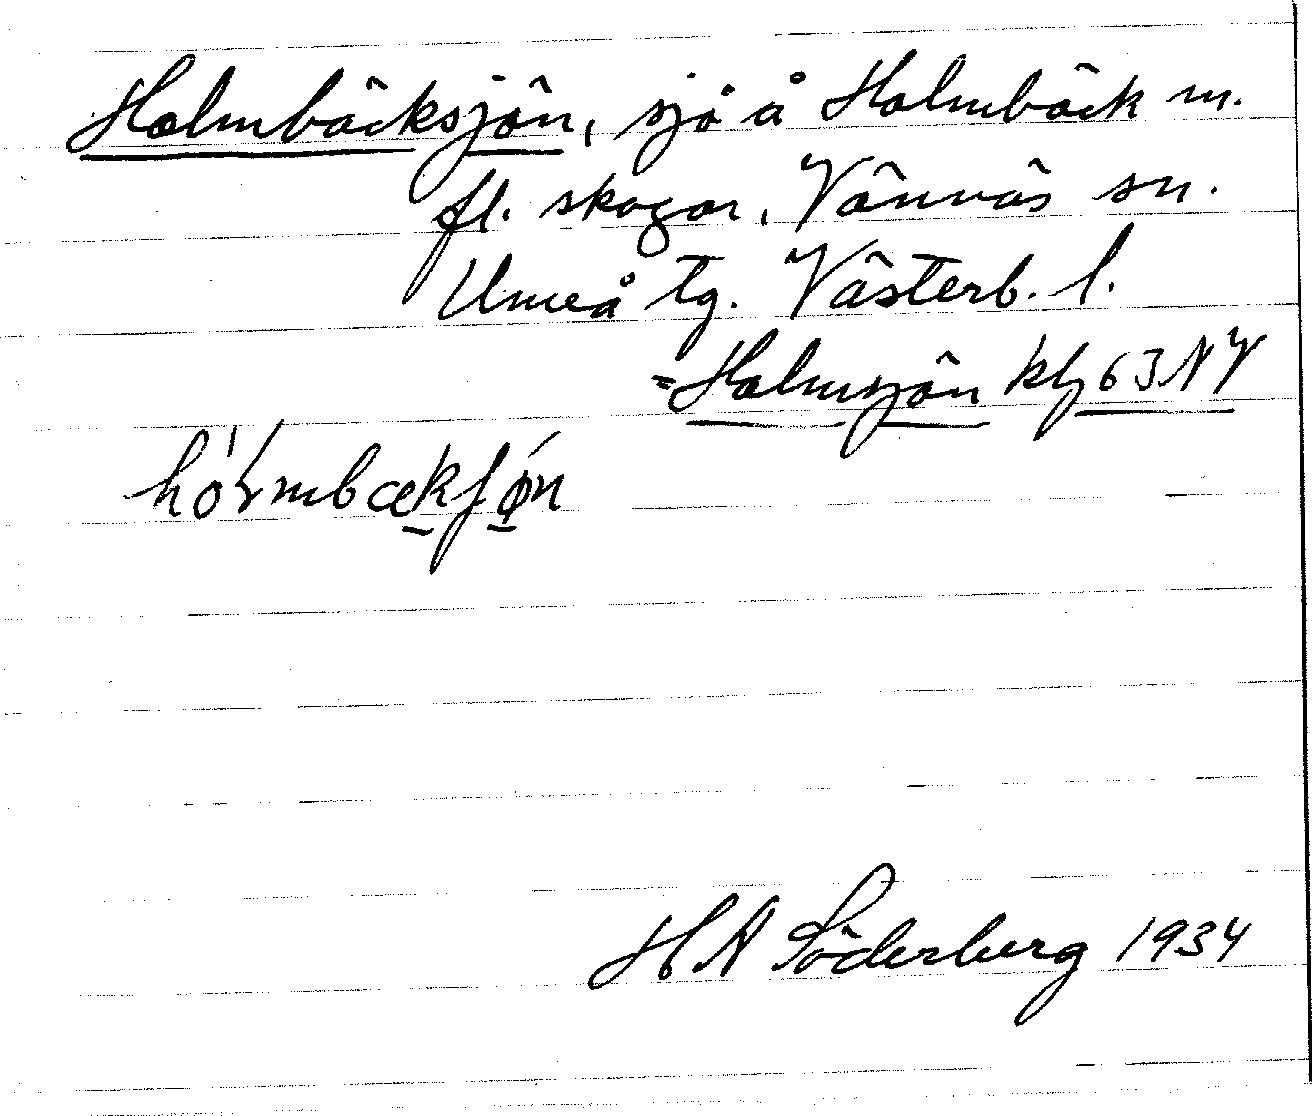 Holmbäcksjön, sjö å Holmbäck m.
fl. skogar, Vännäs sn.
Umeå tg. Västerb. l.
=Holmsjön kbl 63 NV
H A Söderberg 1934